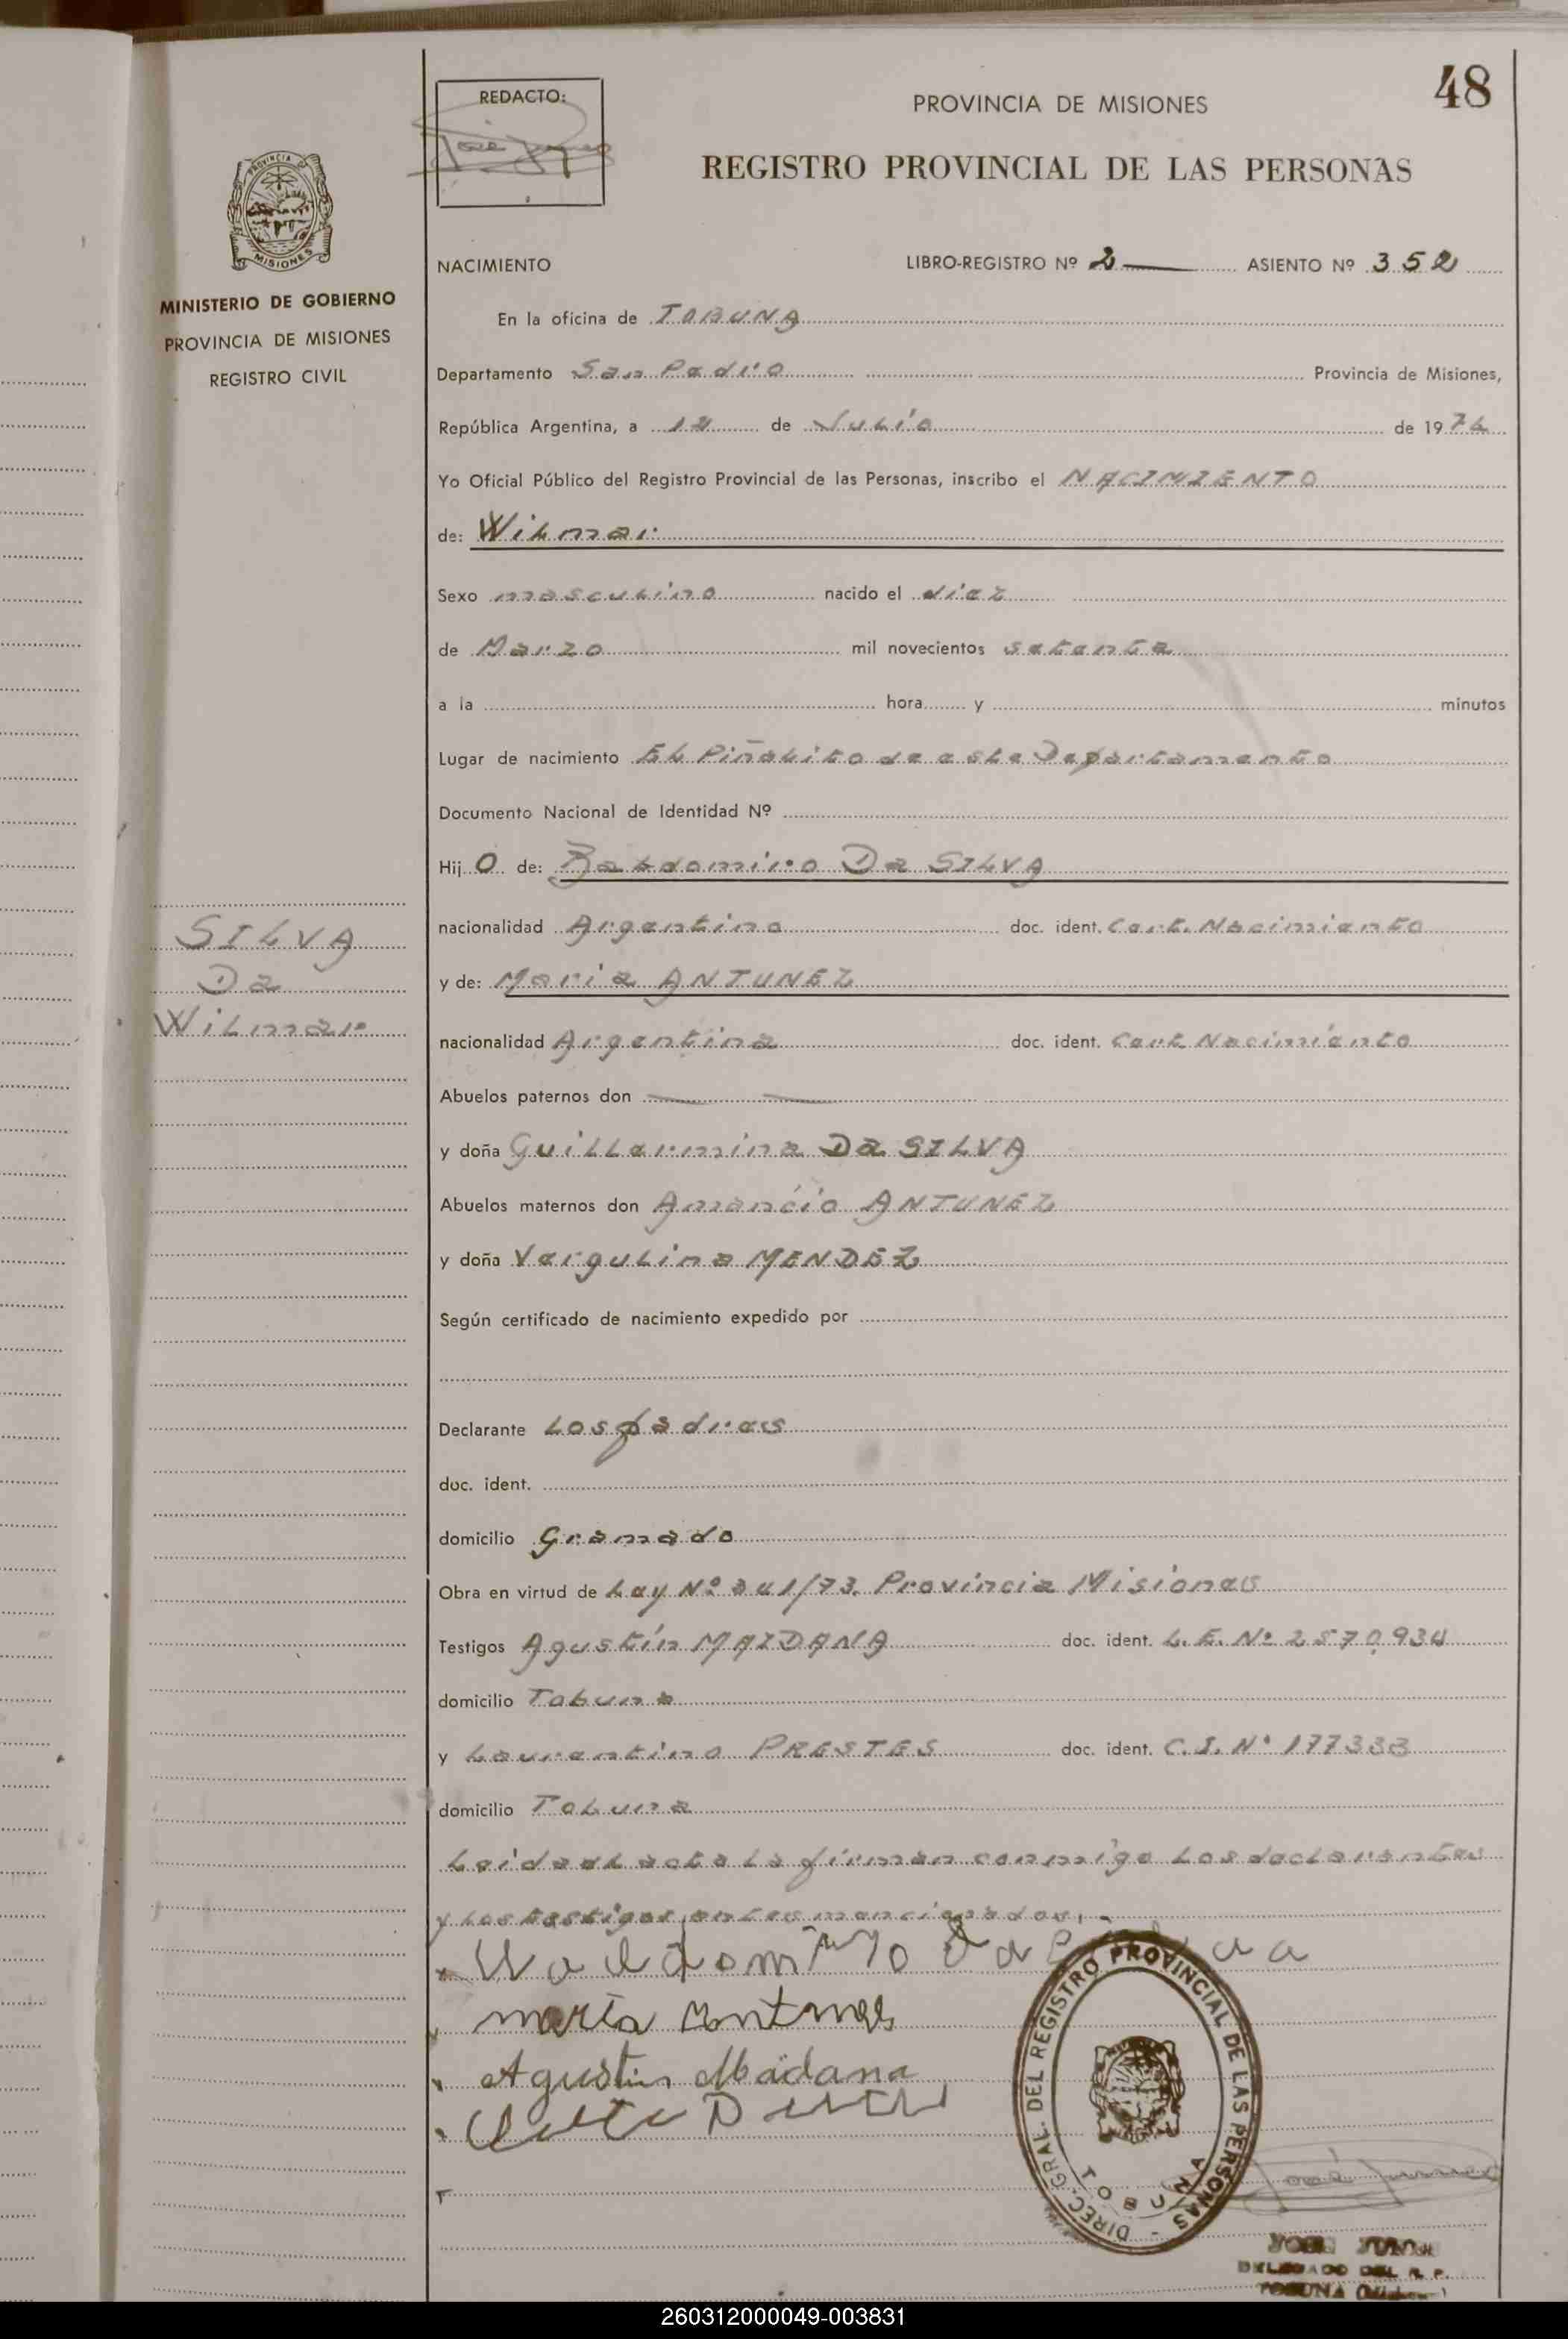 48
REDACTO:
PROVINCIA DE MISIONES
REGISTRO PROVINCIAL DE LAS PERSONAS
PROVINCIA DE
MISIONES
MINISTERIO DE GOBIERNO
PROVINCIA DE MISIONES
REGISTRO CIVIL
NACIMIENTO LIBRO-REGISTRO Nº 2 ASIENTO Nº 352
En la oficina de TOBUNA
Departamento San Pedro Provincia de Misiones,
República Argentina, a 12 de Julio de 1974
Yo Oficial Público del Registro Provincial de las Personas, inscribo el NACIMIENTO
de: Wilmar
Sexo masculino nacido el diez
de Marzo mil novecientos setenta
a la hora y minutos
Lugar de nacimiento El Piñalito de este Departamento
Documento Nacional de Identidad Nº
Hij o de: Baldomiro Da SILVA
nacionalidad Argentino doc. ident. Cert. Nacimiento
SILVA
Da
Wilmar
y de: Maria ANTUNEZ
nacionalidad Argentina doc. ident. Cert. Nacimiento
Abuelos paternos don
y doña Guillermina Da SILVA
Abuelos maternos don Amancio ANTUNEZ
y doña Vergulina MENDEZ
Según certificado de nacimiento expedido por
Declarante Los padres
doc. ident.
domicilio Gramado
Obra en virtud de Ley Nº 341/73. Provincia Misiones
Testigos Agustín MAIDANA doc. ident. L.E. Nº 2570.934
domicilio Tobuna
y Laurentino PRESTES doc. ident. C.I. Nº 177333
domicilio Tobuna
Leida el acta la firman conmigo Los declarantes
y Los testigos antes mencionados.-
Waldomiro da
maria
Agustin Madana
DIREC. GRAL. DEL REGISTRO PROVINCIAL DE LAS PERSONAS -
TOBUNA
DELEGADO DEL R. P.
TOBUNA
260312000049-003831